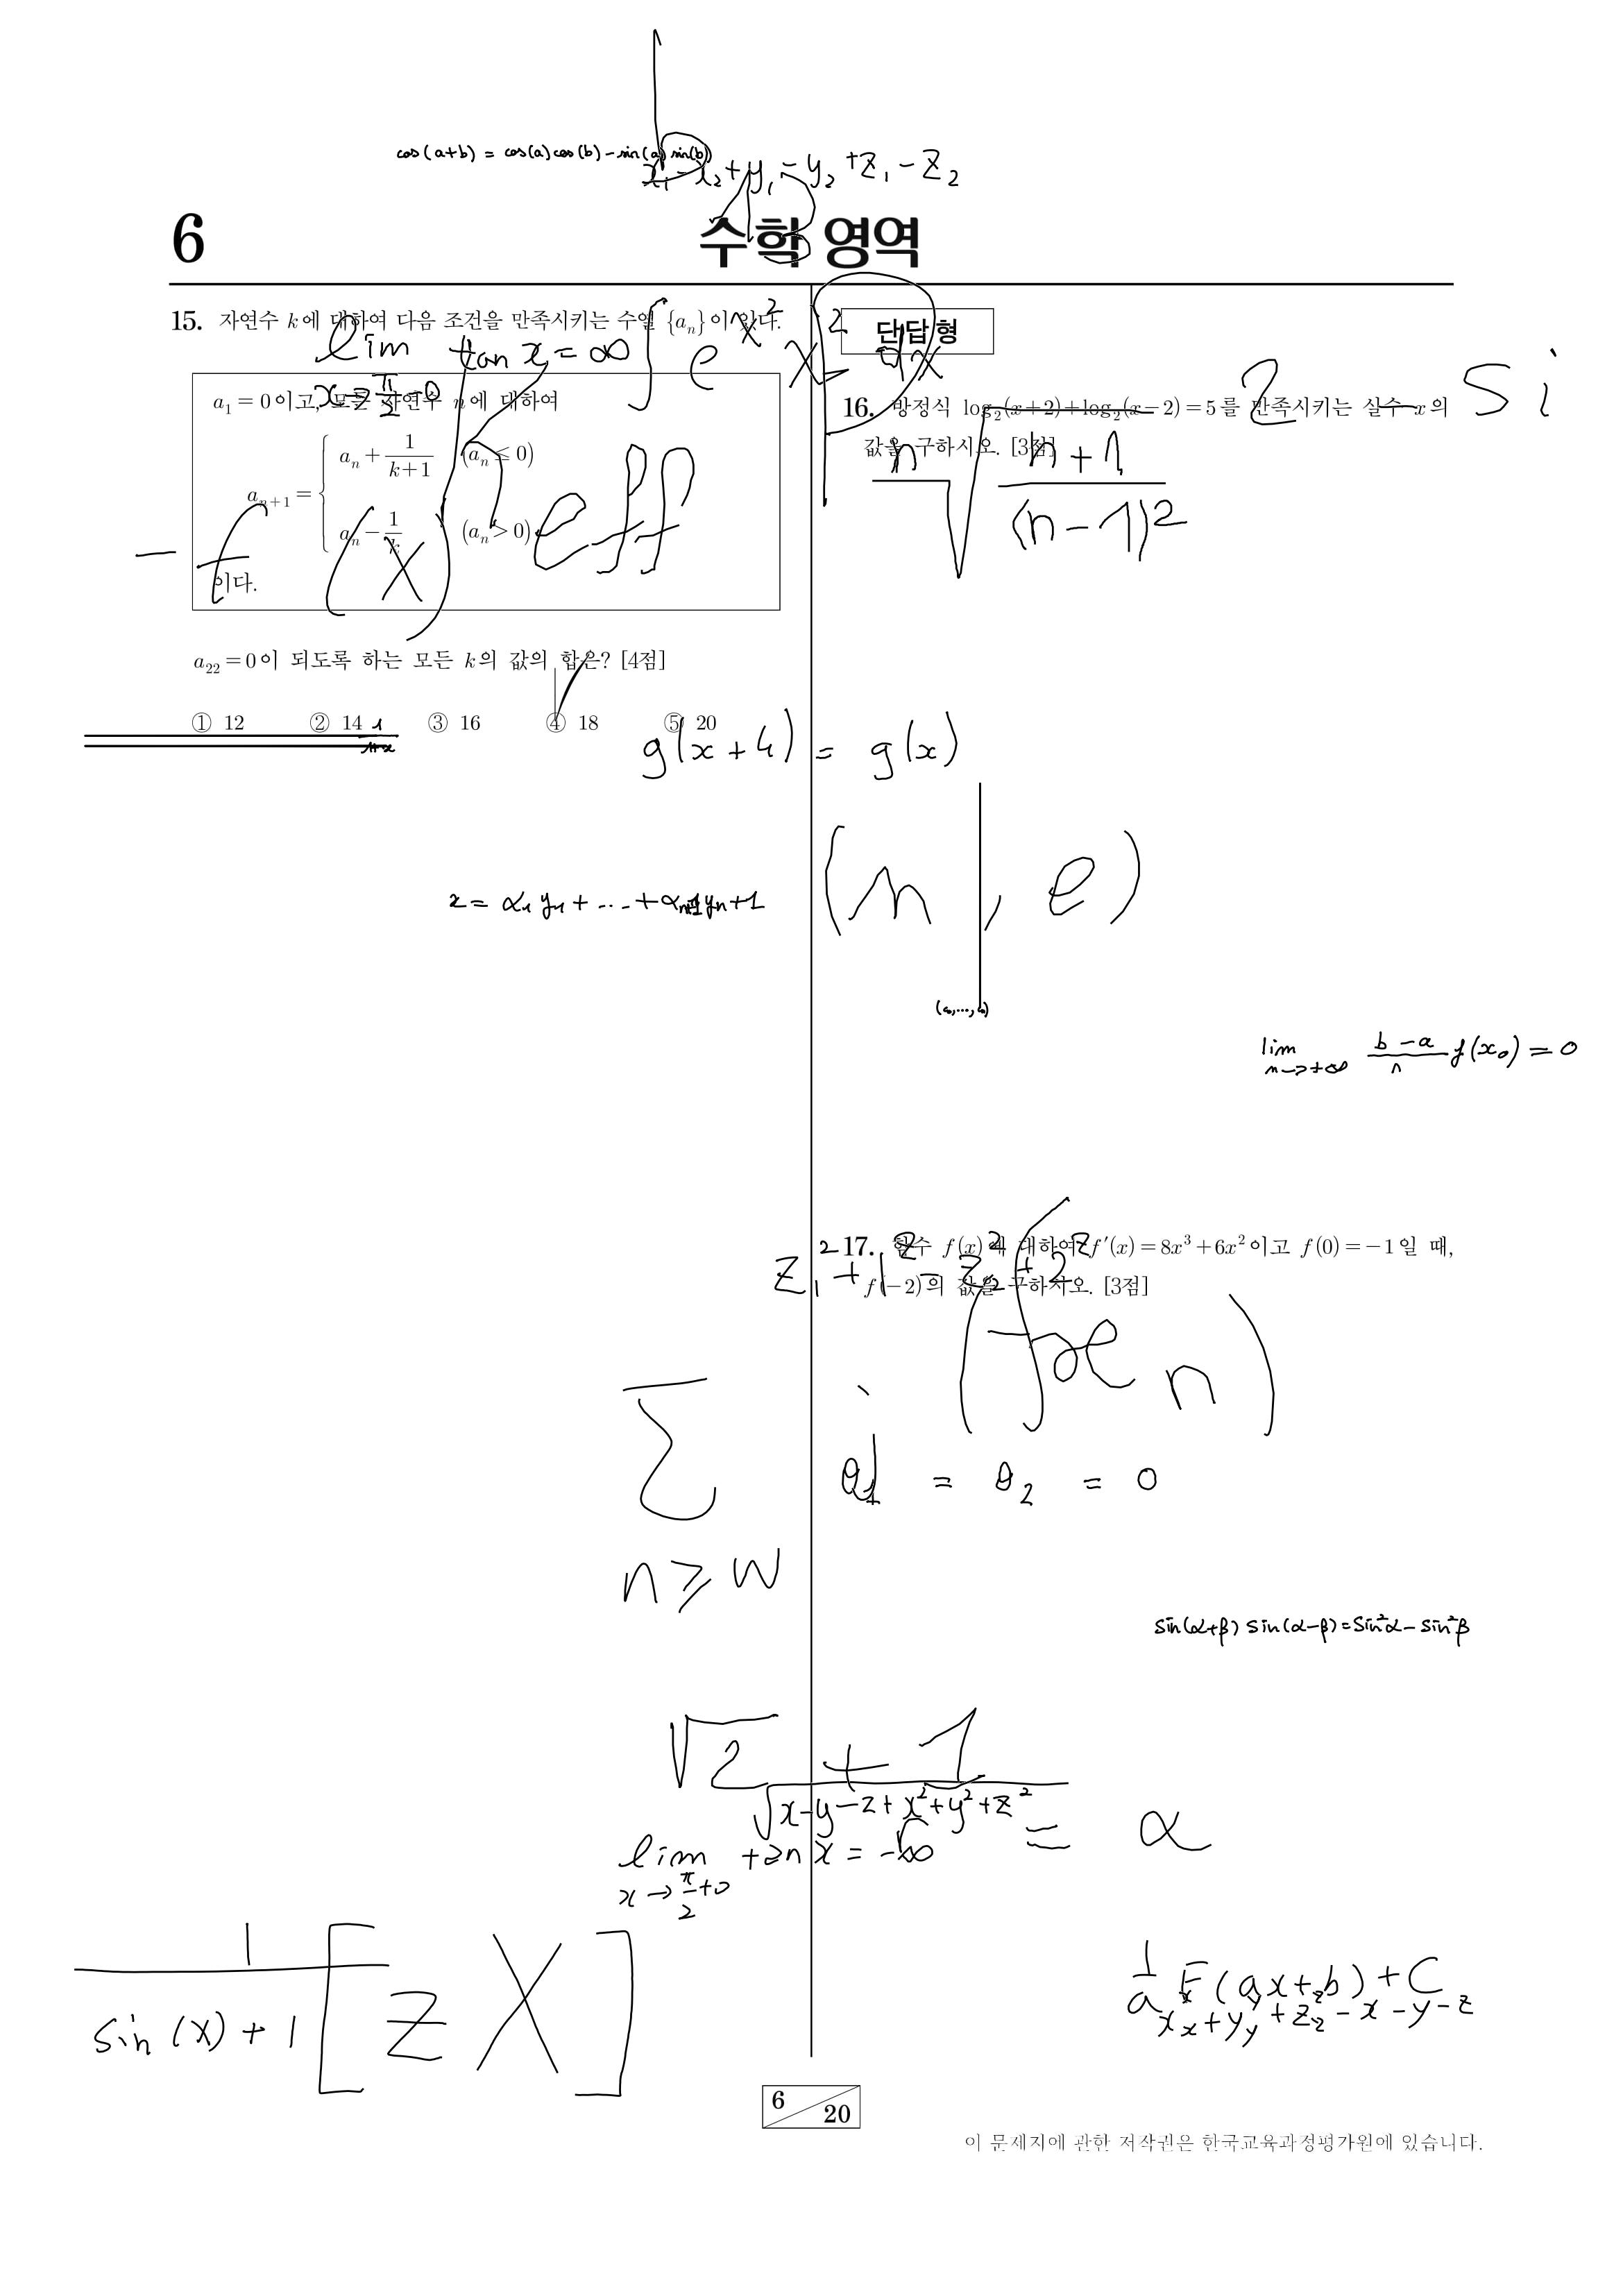 cos(a+b) = cos(a)cos(b)-sin(a)sin(b)
x₁-x₂+y₁-y₂+z₁-z₂
6
수학 영역
15. 자연수 k에 대하여 다음 조건을 만족시키는 수열 {aₙ}이 있다.
lim tan x = ∞
x→π/2-0
∫ e^x² x² dx
a₁ = 0이고, 모든 자연수 n에 대하여
aₙ₊₁ = { aₙ + 1/(k+1) (aₙ ≤ 0)
aₙ - 1/k (aₙ > 0)
이다.
- f(x)
eff
a₂₂ = 0이 되도록 하는 모든 k의 값의 합은? [4점]
① 12 ② 14 ③ 16 ④ 18 ⑤ 20
g(x+4) = g(x)
z = α₁y₁ + ... + αₙ₊₁yₙ+1
단답형
16. 방정식 log₂(x+2)+log₂(x-2) = 5를 만족시키는 실수 x의
값을 구하시오. [3점]
2 si
n √ (n+1)/(n-1)²
(n, e)
lim (b-a)/n f(x₀) = 0
n→+∞
17. 함수 f(x)에 대하여 f′(x) = 8x³+6x²이고 f(0) = -1일 때,
f(-2)의 값을 구하시오. [3점]
Σ
n ≥ w
= θ₂ = 0
sin(α+β) sin(α-β)=sin²α-sin²β
√2 + 1
√x-y-z+x²+y²+z²
= α
lim tan x = -∞
x→π/2+0
1
sin(x)+1
[zX]
1/a F(ax+b)+C
6
20
이 문제지에 관한 저작권은 한국교육과정평가원에 있습니다.